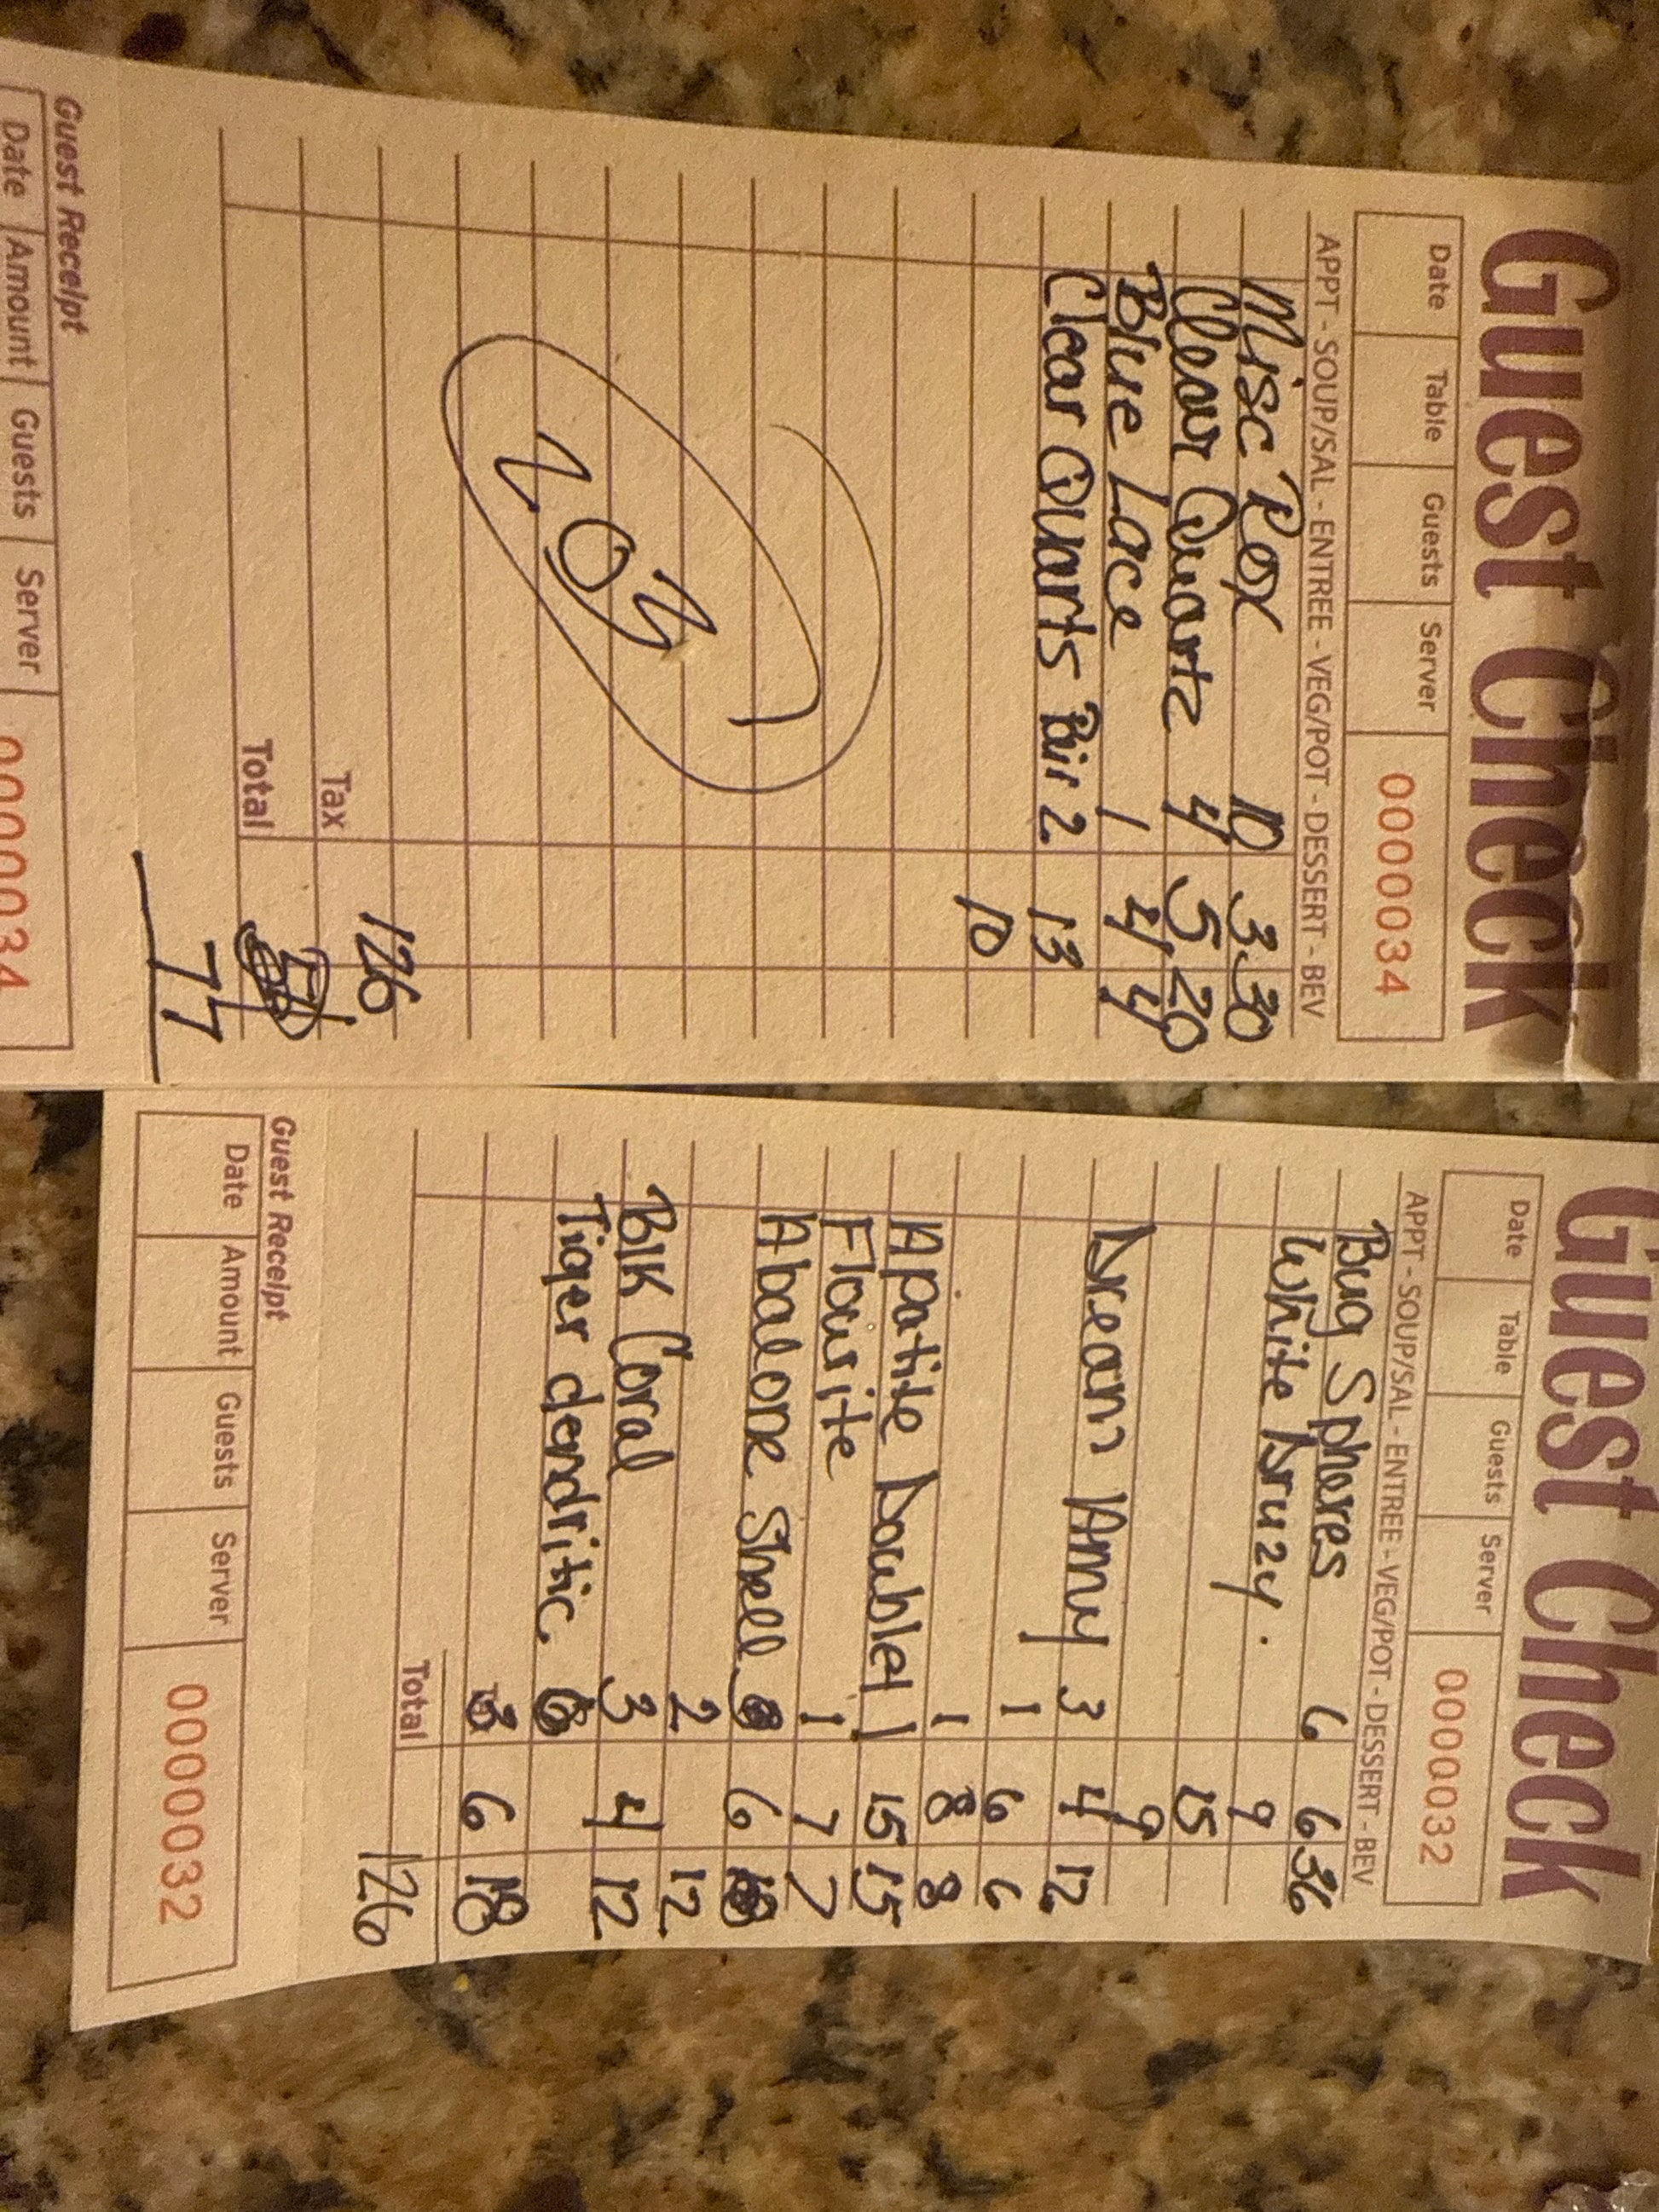 Guest Check
Date Table Guests Server 0000034
APPT - SOUP/SAL - ENTREE - VEG/POT - DESSERT - BEV
Misc Rox 10 3 30
Clear Quartz 4 5 20
Blue Lace 1 4 4
Clear Quarts Bir 2 13
10
203
126
Tax
Total
77
Guest Receipt
Date Amount Guests Server 0000034
Guest Check
Date Table Guests Server 0000032
APPT - SOUP/SAL - ENTREE - VEG/POT - DESSERT - BEV
Bug Spheres 6 6 36
White Druzy. 9
15
9
Dream Amy 3 4 12
1 6 6
1 8 8
Apatite Doublet 1 15 15
Flourite 1 7 7
Abalone Shell 6
2 12
Blk Coral 3 4 12
Tiger dendritic
3 6 18
Total 126
Guest Receipt
Date Amount Guests Server 0000032